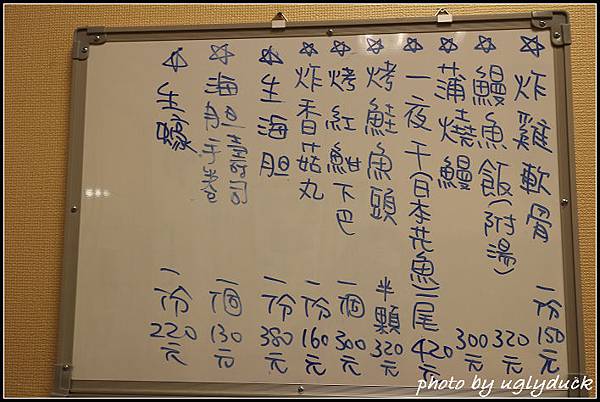 ☆炸雞軟骨 一份150元
☆鰻魚飯(附湯) 320元
☆蒲燒鰻 300元
☆一夜干(日本花魚)一尾 420元
☆烤鮭魚頭 半顆320元
☆烤紅魽下巴 一個300元
☆炸香菇丸 一份160元
☆生海胆 一份380元
☆海胆手卷 一個130元
☆生蠔 一份220元
photo by uglyduck